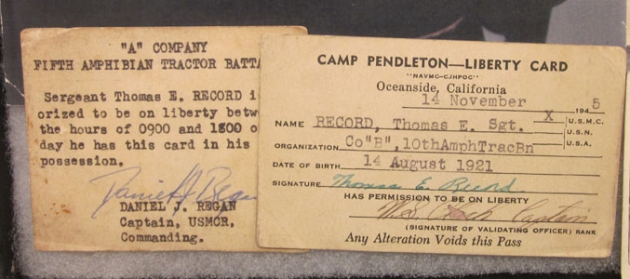 "A" COMPANY
FIFTH AMPHIBIAN TRACTOR BATTA
Sergeant Thomas E. RECORD i
orized to be on liberty betw
the hours of 0900 and 1800 o
day he has this card in his
possession.
Daniel J Regan
DANIEL J. REGAN
Captain, USMCR,
Commanding.
CAMP PENDLETON—LIBERTY CARD
Oceanside, California
14 November 1945
X U.S.M.C.
U.S.N.
U.S.A.
NAME RECORD, Thomas E. Sgt.
ORGANIZATION Co"B", 10thAmphTracBn
DATE OF BIRTH 14 August 1921
SIGNATURE Thomas E. Record
HAS PERMISSION TO BE ON LIBERTY
Captain
(SIGNATURE OF VALIDATING OFFICER) RANK
Any Alteration Voids this Pass